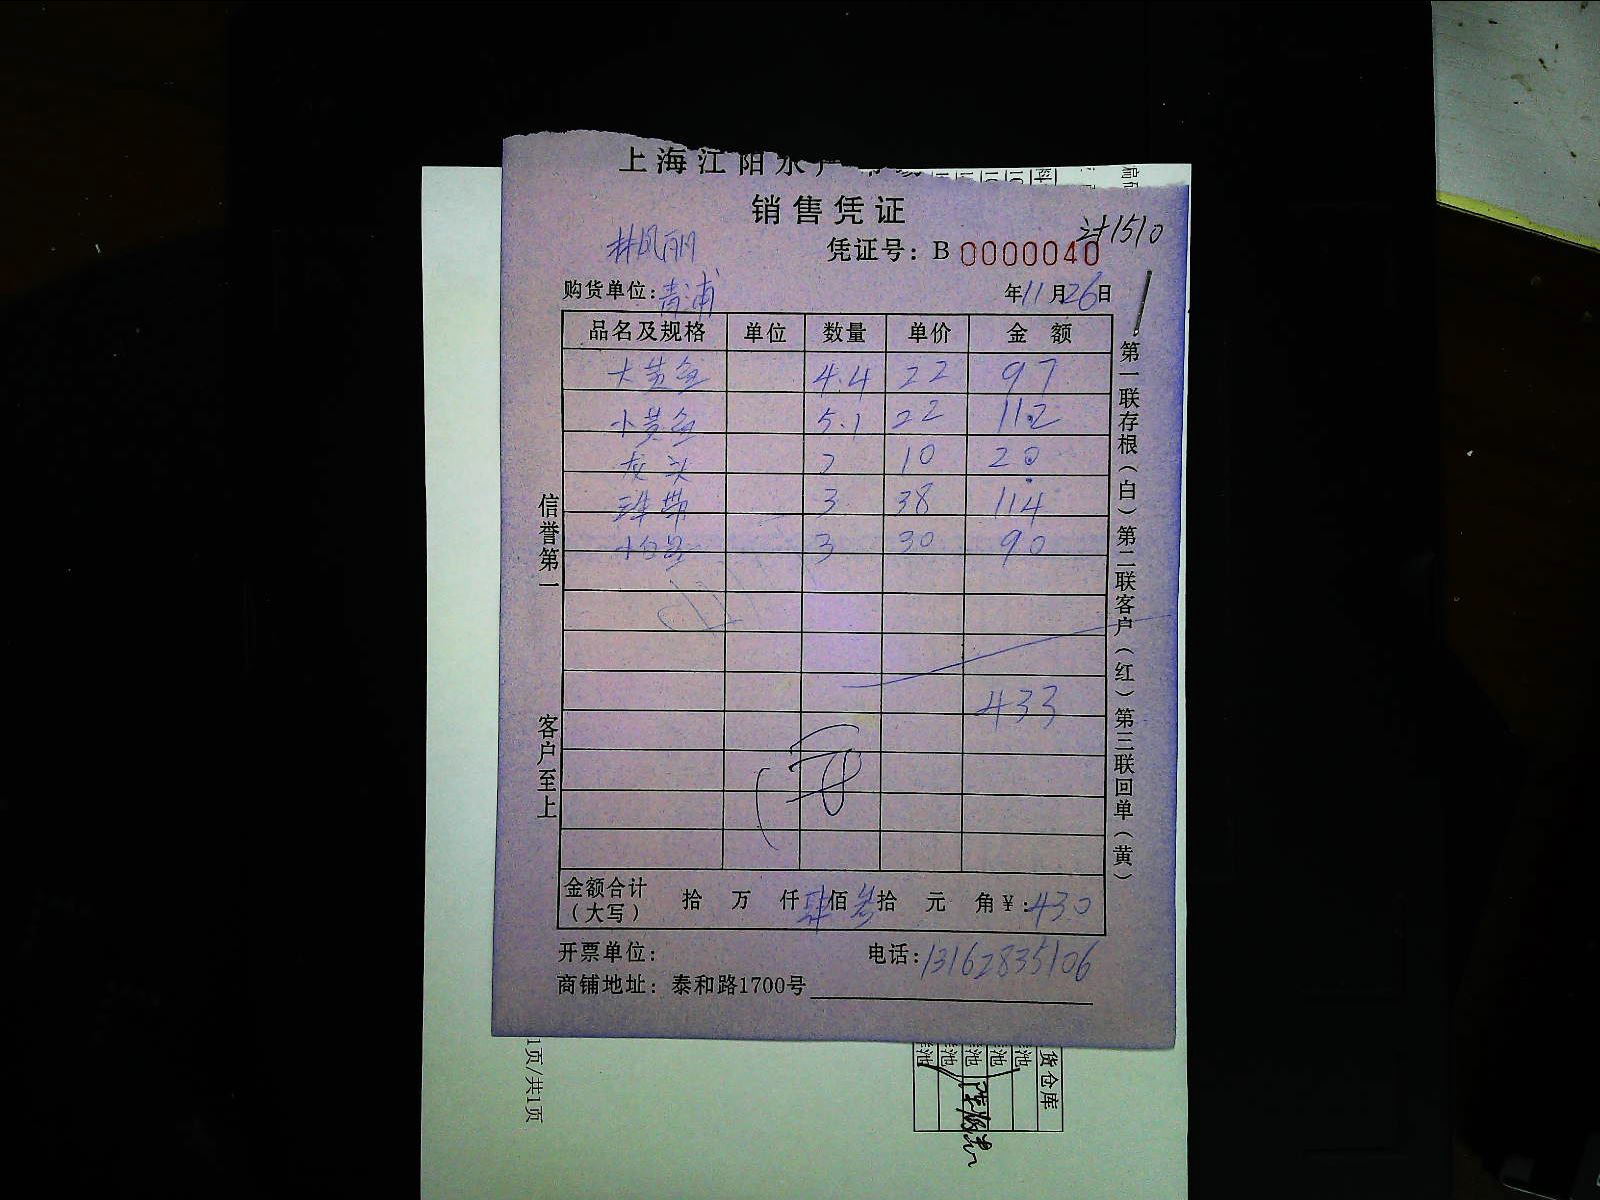 上海江阳水产市场
销售凭证
计1510
林凤丽
凭证号：B 0000040
购货单位：青浦
年11月26日
品名及规格 单位 数量 单价 金额
大黄鱼 4.4 22 97
小黄鱼 5.1 22 112
龙头 2 10 20
3 38 114
3 30 90
433
金额合计（大写） 拾 万 仟 肆佰 叁拾 元 角¥：430
开票单位：
电话：13162835106
商铺地址：泰和路1700号
信誉第一 客户至上
第一联存根（白）第二联客户（红）第三联回单（黄）
货仓库
1页/共1页